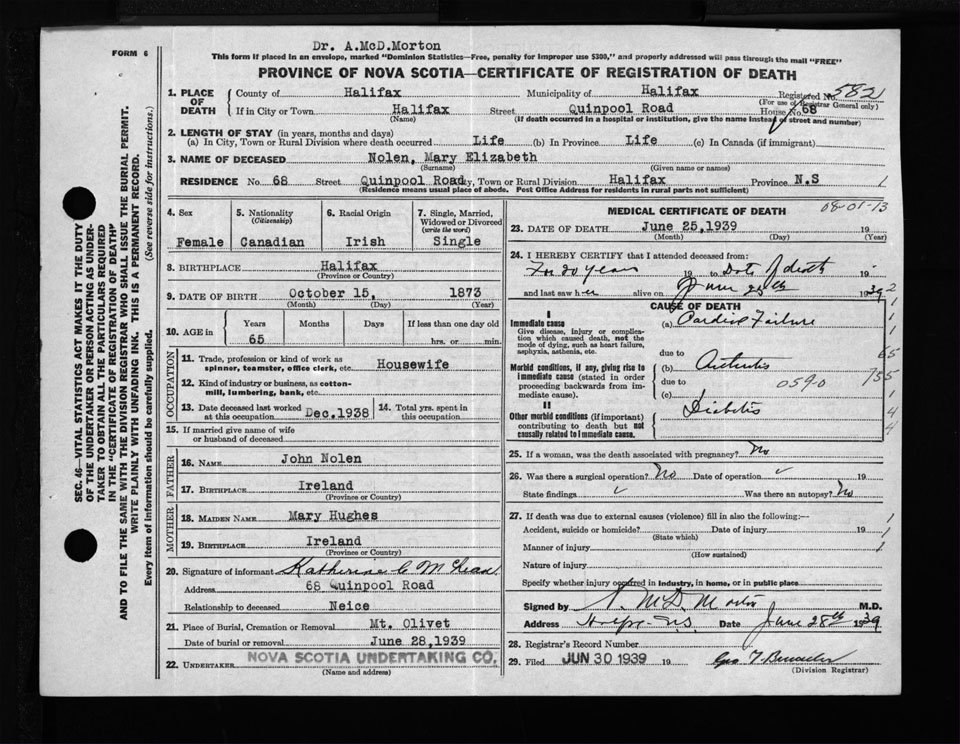 Dr. A.McD.Morton
FORM 6
This form if placed in an envelope, marked "Dominion Statistics—Free, penalty for improper use $300," and properly addressed will pass through the mail "FREE"
PROVINCE OF NOVA SCOTIA—CERTIFICATE OF REGISTRATION OF DEATH
1. PLACE OF DEATH County of Halifax Municipality of Halifax Registered No. 582
(For use of Registrar General only)
If in City or Town Halifax Street Quinpool Road House No. 68
(Name) (If death occurred in a hospital or institution, give the name instead of street and number)
2. LENGTH OF STAY (in years, months and days)
(a) In City, Town or Rural Division where death occurred Life (b) In Province Life (c) In Canada (if immigrant)
3. NAME OF DECEASED Nolen, Mary Elizabeth
(Surname) (Given name or names)
RESIDENCE No. 68 Street Quinpool Road City, Town or Rural Division Halifax Province N.S 1
(Residence means usual place of abode. Post Office Address for residents in rural parts not sufficient)
SEC. 46—VITAL STATISTICS ACT MAKES IT THE DUTY
OF THE UNDERTAKER OR PERSON ACTING AS UNDER-
TAKER TO OBTAIN ALL THE PARTICULARS REQUIRED
IN THE "CERTIFICATE OF REGISTRATION OF DEATH"
AND TO FILE THE SAME WITH THE DIVISION REGISTRAR WHO SHALL ISSUE THE BURIAL PERMIT.
WRITE PLAINLY WITH UNFADING INK. THIS IS A PERMANENT RECORD.
Every item of information should be carefully supplied. (See reverse side for instructions.)
4. Sex Female
5. Nationality (Citizenship) Canadian
6. Racial Origin Irish
7. Single, Married, Widowed or Divorced (write the word) Single
8. BIRTHPLACE Halifax
(Province or Country)
9. DATE OF BIRTH October 15, 1873
(Month) (Day) (Year)
10. AGE in Years Months Days If less than one day old
65 hrs. or min.
OCCUPATION
11. Trade, profession or kind of work as
spinner, teamster, office clerk, etc. Housewife
12. Kind of industry or business, as cotton-
mill, lumbering, bank, etc.
13. Date deceased last worked at this occupation Dec.1938
14. Total yrs. spent in this occupation
15. If married give name of wife
or husband of deceased
FATHER
16. NAME John Nolen
17. BIRTHPLACE Ireland
(Province or Country)
MOTHER
18. MAIDEN NAME Mary Hughes
19. BIRTHPLACE Ireland
(Province or Country)
20. Signature of informant Katherine C McLean
Address 68 Quinpool Road
Relationship to deceased Neice
21. Place of Burial, Cremation or Removal Mt. Olivet
Date of burial or removal June 28,1939
22. UNDERTAKER NOVA SCOTIA UNDERTAKING CO.
(Name and address)
MEDICAL CERTIFICATE OF DEATH 08-01-13
23. DATE OF DEATH June 25,1939 19
(Month) (Day) (Year)
24. I HEREBY CERTIFY that I attended deceased from:
For 20 years 19 to Date of death 19
and last saw her alive on June 25th 1939
CAUSE OF DEATH
I
Immediate cause (a) Cardiac Failure
Give disease, injury or complica-
tion which caused death, not the
mode of dying, such as heart failure,
asphyxia, asthenia, etc.
due to
Morbid conditions, if any, giving rise to
immediate cause (stated in order
proceeding backwards from im-
mediate cause).
(b) Arteritis
due to 0590
(c)
II
Other morbid conditions (if important)
contributing to death but not
causally related to immediate cause. Diabetis
2
1
1
65
755
1
4
4
25. If a woman, was the death associated with pregnancy? No
26. Was there a surgical operation? No Date of operation 19
State findings Was there an autopsy? No
27. If death was due to external causes (violence) fill in also the following:—
Accident, suicide or homicide? Date of injury 19
(State which)
Manner of injury
(How sustained)
Nature of injury
Specify whether injury occurred in industry, in home, or in public place
1
1
1
Signed by A. McD. Morton M.D.
Address Halifax N.S. Date June 28th 1939
28. Registrar's Record Number
29. Filed JUN 30 1939 19
(Division Registrar)